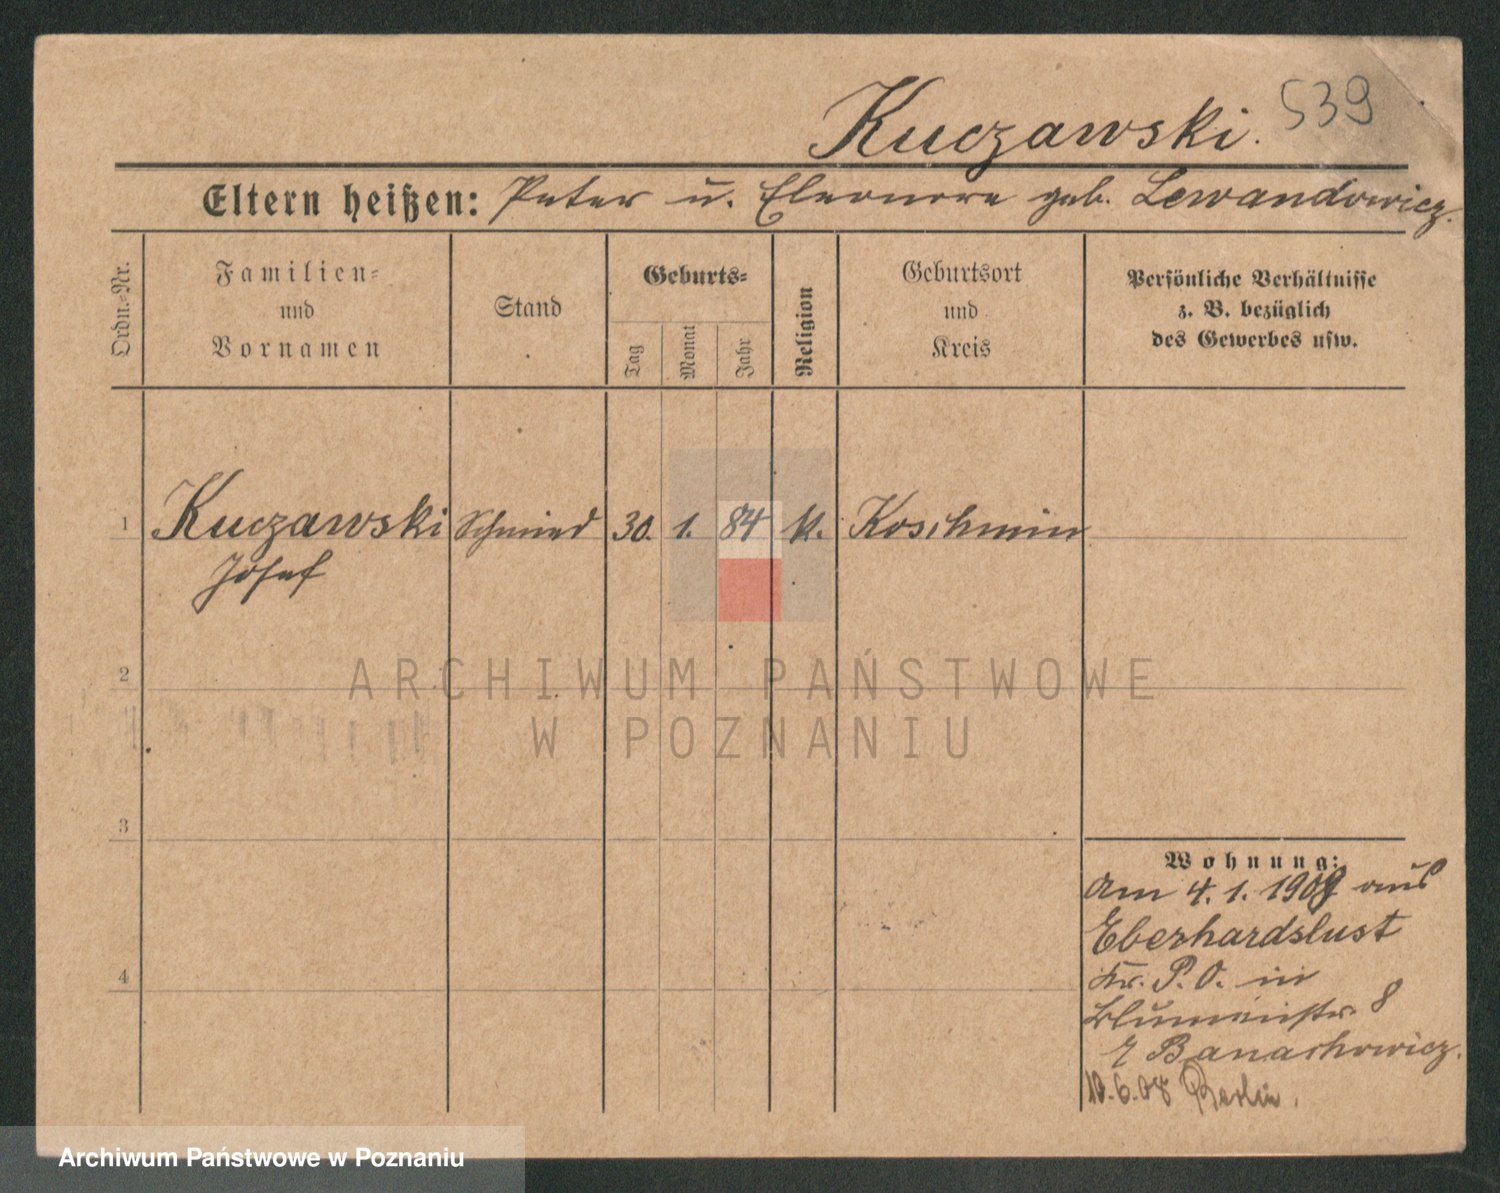 Kuczawski. 539
Eltern heißen: Peter u. Eleonore geb. Lewandowicz.
Ordn.-Nr.
Familien-
und
Vornamen
Stand
Geburts-
Tag
Monat
Jahr
Religion
Geburtsort
und
Kreis
Persönliche Verhältnisse
z. B. bezüglich
des Gewerbes usw.
1 Kuczawski Schmied 30. 1. 84 k. Koschmin
Josef
2
ARCHIWUM PAŃSTWOWE
W POZNANIU
3
Wohnung:
Am 4. 1. 1908 aus
Eberhardslust
4
Kr. P. O. in
Blumenstr. 8
Banachowicz.
10.6.08 Berlin.
Archiwum Państwowe w Poznaniu